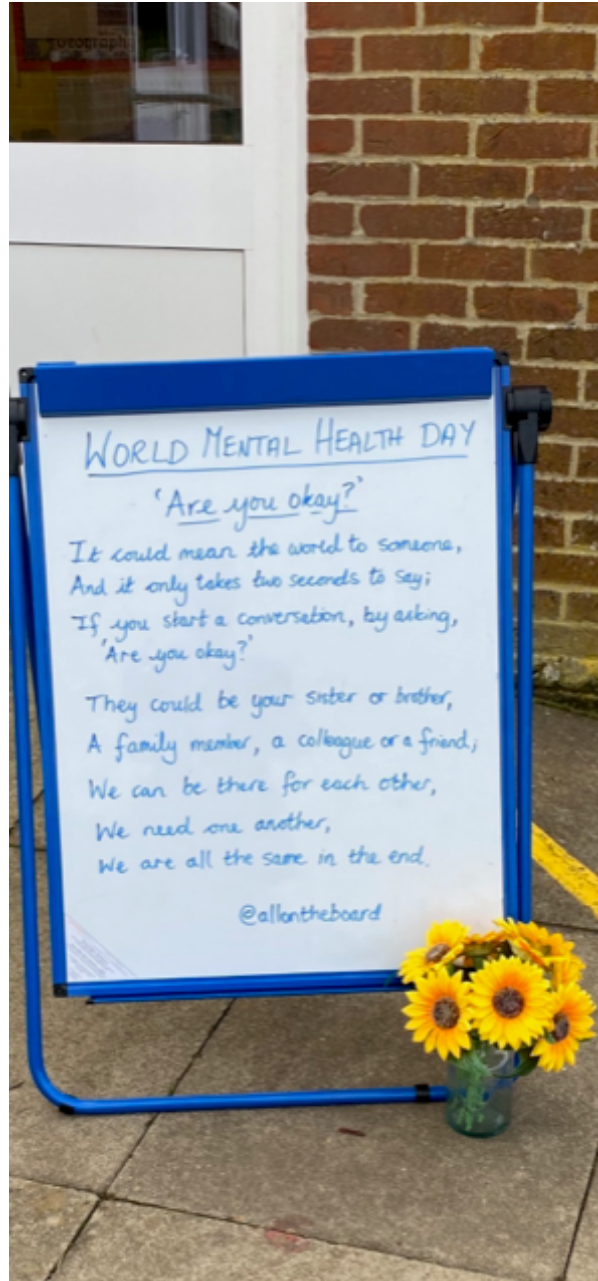 WORLD MENTAL HEALTH DAY
'Are you okay?'
It could mean the world to someone,
And it only takes two seconds to say;
If you start a conversation, by asking,
'Are you okay?'
They could be your sister or brother,
A family member, a colleague or a friend;
We can be there for each other,
We need one another,
We are all the same in the end.
@allontheboard